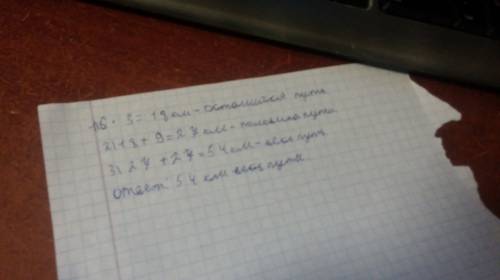 1)6 · 3 = 18 см - остальной путь
2) 18 + 9 = 27 см - половина пути
3) 27 + 27 = 54 см - весь путь
Ответ: 54 см весь путь.